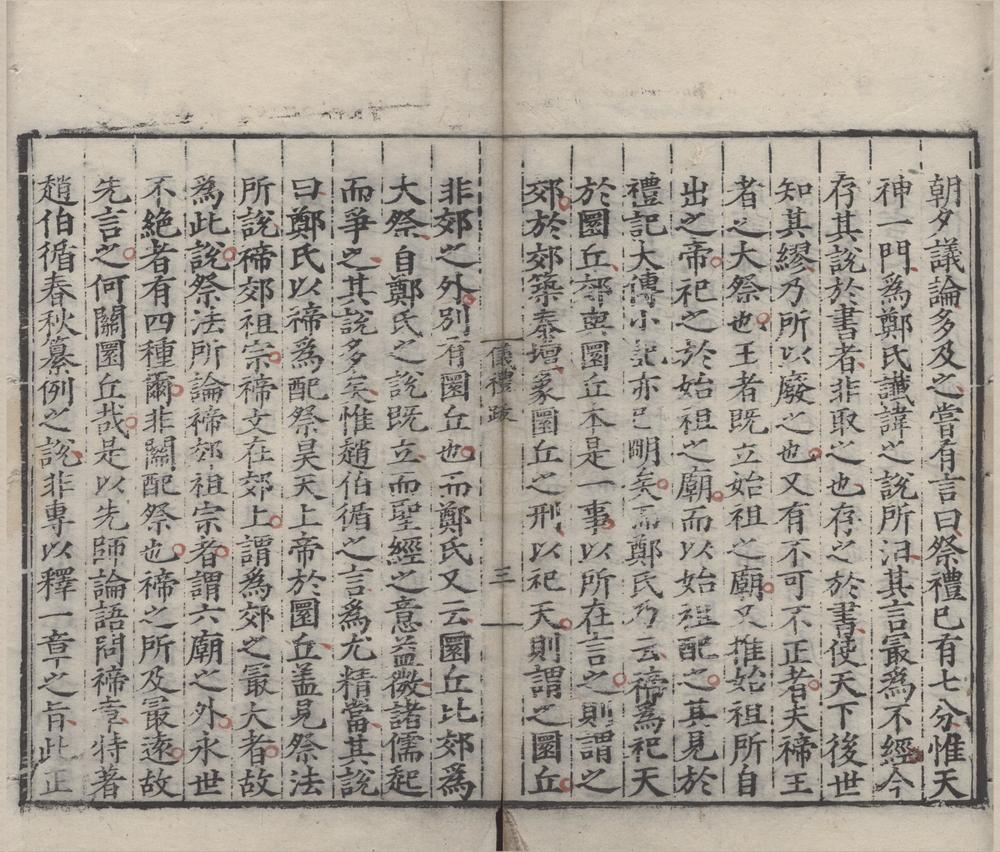 朝夕議論多及之嘗有言曰祭禮已有七八分惟天
神一門爲鄭氏讖諱之說所汨其言最爲不經今
存其說於書者非取之也存之於書使天下後世
知其繆乃所以廢之也又有不可不正者夫禘王
者之大祭也王者既立始祖之廟又推始祖所自
出之帝祀之於始祖之廟而以始祖配之其見於
禮記大傳小記亦已明矣而鄭氏乃云禘爲祀天
於圜丘郊與圜丘本是一事以所在言之則謂之
郊於郊築泰壇象圜丘之形以祀天則謂之圜丘
儀禮疏
三
非郊之外別有圜丘也而鄭氏又云圜丘比郊爲
大祭自鄭氏之說既立而聖經之意益微諸儒起
而爭之其說多矣惟趙伯循之言爲尤精當其說
曰鄭氏以禘爲配祭昊天上帝於圜丘盖見祭法
所說禘郊祖宗禘文在郊上謂爲郊之最大者故
爲此說祭法所論禘郊祖宗者謂六廟之外永世
不絕者有四種爾非關配祭也禘之所及最遠故
先言之何關圜丘哉是以先師論語問禘章特著
趙伯循春秋纂例之說非專以釋一章之旨此正